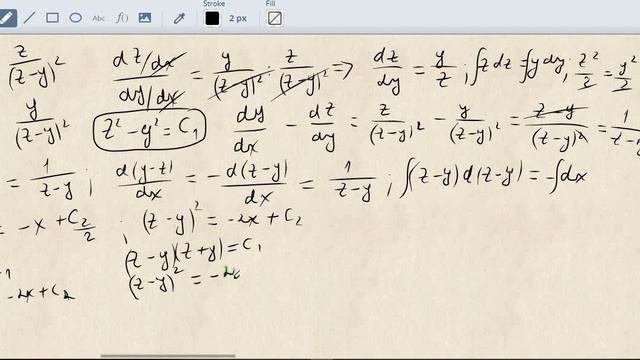 Stroke Fill
Abc f() 2 px
z/(z-y)² (dz/dx)/(dy/dx) = y/(z-y)² : z/(z-y)² => dz/dy = y/z ; ∫z dz = ∫y dy ; z²/2 = y²/2
y/(z-y)² z² - y² = C₁ dy/dx - dz/dy = z/(z-y)² - y/(z-y)² = z-y/(z-y)² = 1/z-y
= 1/z-y ; d(y-z)/dx = - d(z-y)/dx = 1/z-y ; ∫(z-y)d(z-y) = -∫dx
= -x + C₂/2 ; (z-y)² = -2x + C₂
(z-y)(z+y) = C₁
-2x + C₂ (z-y)² = -2